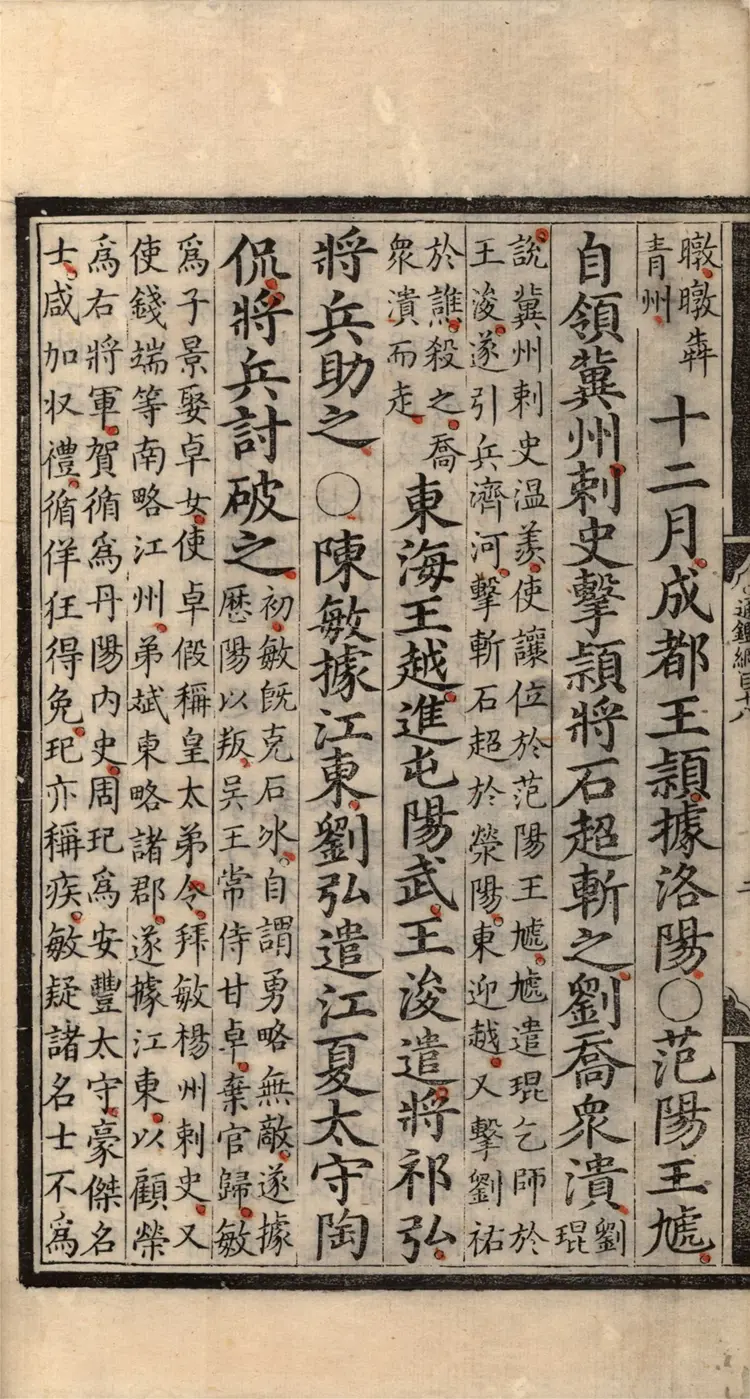 通鑑綱目十八
暾暾犇
青州
十二月成都王頴據洛陽○范陽王虓
自領冀州刺史擊頴將石超斬之劉喬衆潰
劉
琨
說冀州刺史温羨使讓位於范陽王虓虓遣琨乞師於
王浚遂引兵濟河擊斬石超於滎陽東迎越又擊劉祐
於譙殺之喬
衆潰而走
東海王越進屯陽武王浚遣將祁弘
將兵助之○陳敏據江東劉弘遣江夏太守陶
侃將兵討破之
初敏旣克石冰自謂勇略無敵遂據
歷陽以叛吳王常侍甘卓棄官歸敏
爲子景娶卓女使卓假稱皇太弟令拜敏楊州刺史又
使錢端等南略江州弟斌東略諸郡遂據江東以顧榮
爲右將軍賀循爲丹陽内史周玘爲安豐太守豪傑名
士咸加収禮循佯狂得免玘亦稱疾敏疑諸名士不爲